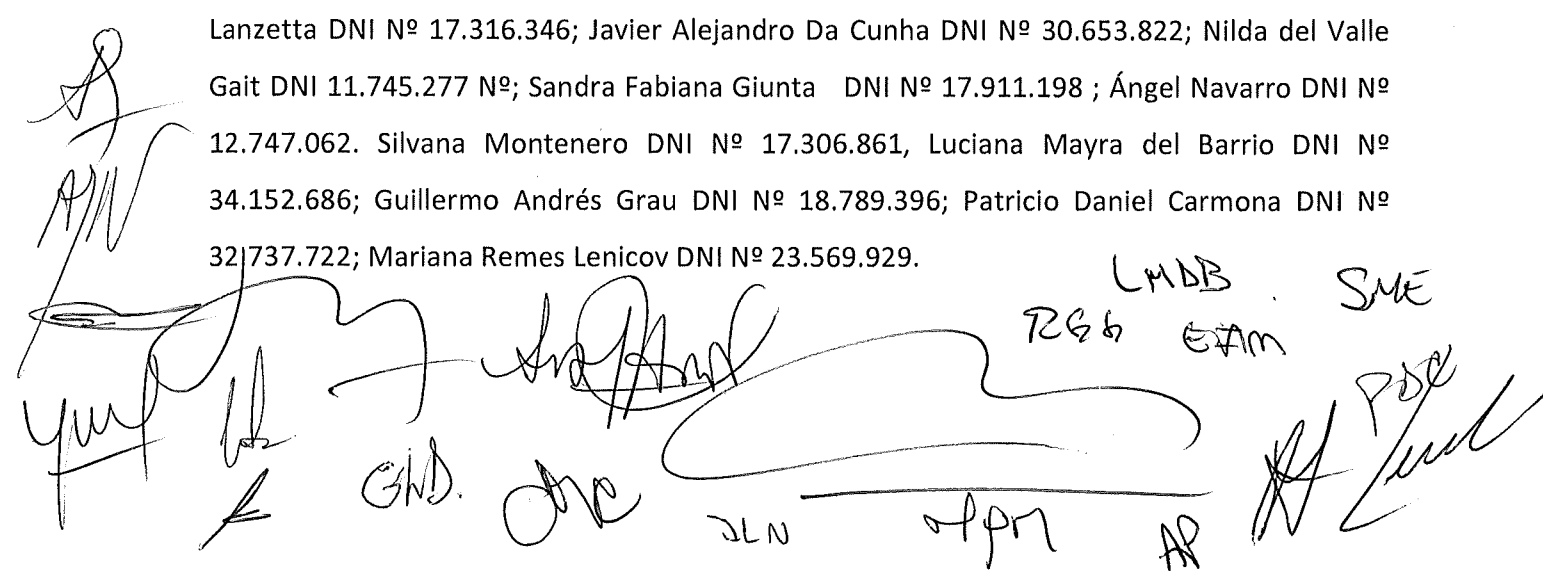 Lanzetta DNI Nº 17.316.346; Javier Alejandro Da Cunha DNI Nº 30.653.822; Nilda del Valle
Gait DNI 11.745.277 Nº; Sandra Fabiana Giunta DNI Nº 17.911.198 ; Ángel Navarro DNI Nº
12.747.062. Silvana Montenero DNI Nº 17.306.861, Luciana Mayra del Barrio DNI Nº
34.152.686; Guillermo Andrés Grau DNI Nº 18.789.396; Patricio Daniel Carmona DNI Nº
32.737.722; Mariana Remes Lenicov DNI Nº 23.569.929.
LMDB
SME
PDC
JLN
AP